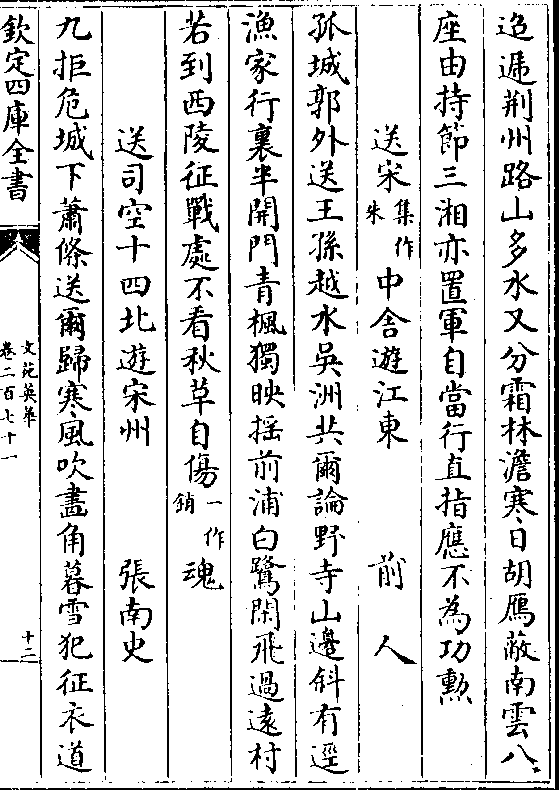 迢遞荆州路山多水又分霜林澹寒日胡鴈蔽南雲八
座由持節三湘亦置軍自當行直指應不為功勲
送宋集作朱中舍遊江東 前人
孤城郭外送王孫越水吳洲共爾論野寺山邊斜有逕
漁家行裏半開門青楓獨映揺前浦白鷺閑飛過遠村
若到西陵征戰處不看秋草自傷一作銷魂
送司空十四北遊宋州 張南史
九拒危城下蕭條送爾歸寒風吹畫角暮雪犯征衣道
欽定四庫全書
文苑英華
卷二百七十一
十二